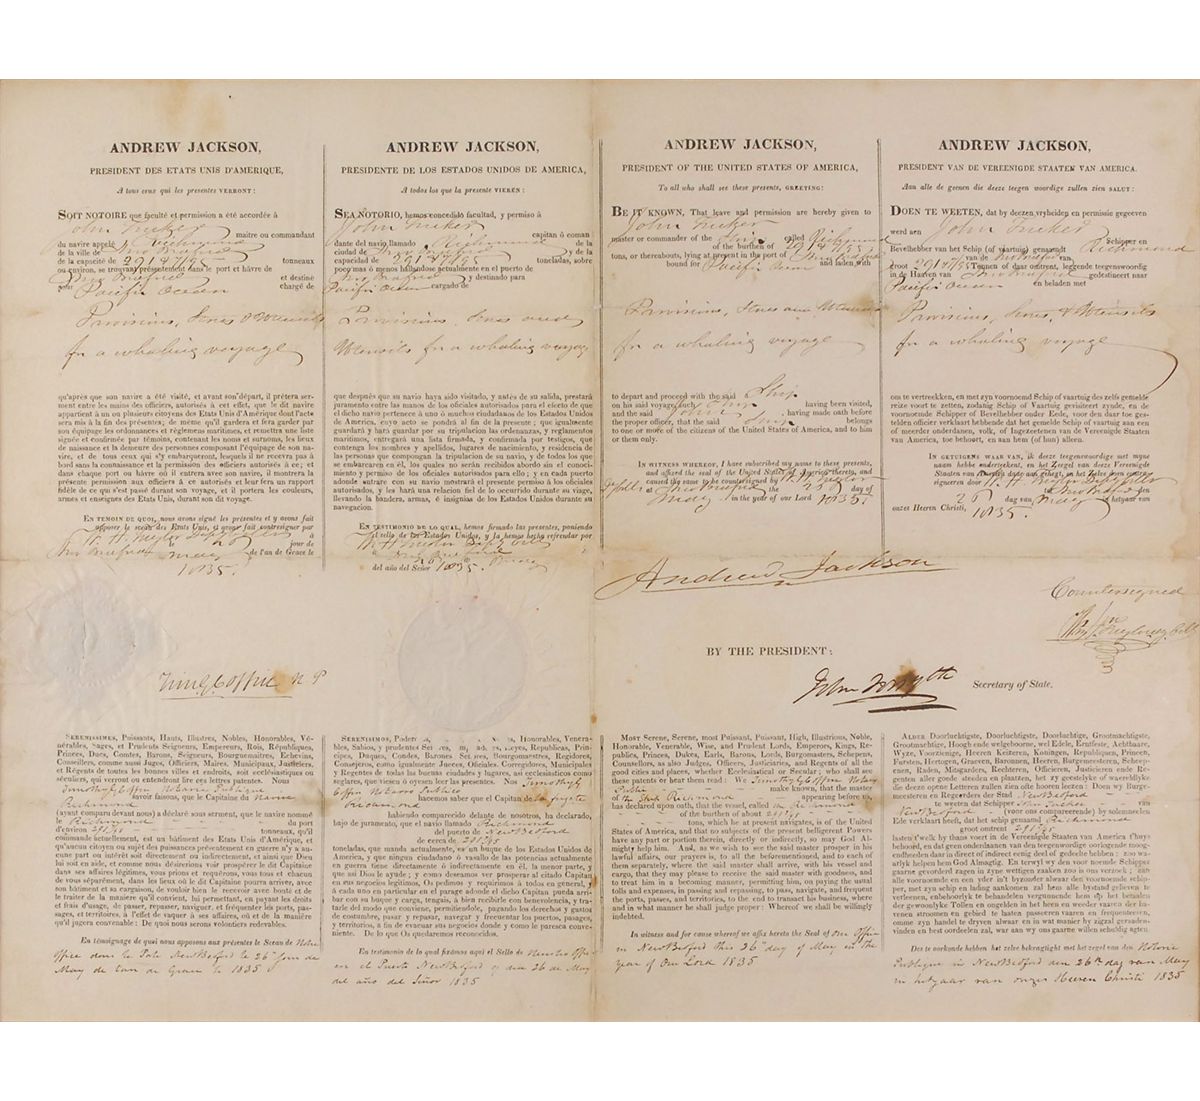 ANDREW JACKSON,
PRESIDENT DES ETATS UNIS D'AMERIQUE,
A tous ceux qui les presentes VERRONT:
SOIT NOTOIRE que faculté et permission a été accordée à
John Tucker maitre ou commandant
du navire appelé Richmond
de la ville de New Bedford
de la capacité de 291 47/95 tonneaux
ou environ, se trouvant présentement dans le port et hâvre de
New Bedford et destiné
pour Pacific Ocean chargé de
Provisions, Stores & Utensils
for a whaling voyage
qu'après que son navire a été visité, et avant son départ, il prêtera ser-
ment entre les mains des officiers, autorisés à cet effet, que le dit navire
appartient à un ou plusieurs citoyens des Etats Unis d'Amérique dont l'acte
sera mis à la fin des présentes; de même qu'il gardera et fera garder par
son équipage les ordonnances et règlemens maritimes, et remettra une liste
signée et confirmée par témoins, contenant les noms et surnoms, les lieux
de naissance et la demeure des personnes composant l'équipage de son na-
vire, et de tous ceux qui s'y embarqueront, lesquels il ne recevra pas à
bord sans la connaissance et la permission des officiers autorisés à ce; et
dans chaque port ou hâvre où il entrera avec son navire, il montrera la
présente permission aux officiers à ce autorisés et leur fera un rapport
fidèle de ce qui s'est passé durant son voyage, et il portera les couleurs,
armes et enseignes des Etats Unis, durant son dit voyage.
EN TEMOIN DE QUOI, nous avons signé les présentes et y avons fait
apposer le sceau des Etats Unis, et avons fait contresigner par
à
New Bedford le 26 jour de
May de l'an de Grace le
1835.
ANDREW JACKSON,
PRESIDENTE DE LOS ESTADOS UNIDOS DE AMERICA,
A todos los que la presente VIEREN:
SEA NOTORIO, hemos concedido facultad, y permiso à
John Tucker capitan ò coman
dante del navio llamado Richmond de la
ciudad de New Bedford y de la
capacidad de 291 47/95 toneladas, sobre
poco mas ò menos hallandose actualmente en el puerto de
New Bedford y destinado para
Pacific Ocean cargado de
Provisions, Stores and
Utensils for a whaling voyage
que despues que su navio haya sido visitado, y antes de su salida, prestará
juramento entre las manos de los oficiales autorizados para el efecto de que
el dicho navio pertenece á unò ò muchos ciudadanos de los Estados Unidos
de America, cuyo acto se pondrá al fin de la presente; que igualmente
guardará y hará guardar por su tripulacion las ordenanzas, y reglementos
maritimos, entregará una lista firmada, y confirmada por testigos, que
contenga los nombres y apellidos, lugares de nacimiento, y residencia de
las personas que compongan la tripulacion de su navio, y de todos los que
se embarcaren en él, los quales no serán recibidos abordo sin el conoci-
miento y permiso de los oficiales autorizados para ello; y en cada puerto
adonde entrare con su navio mostrará el presente permiso à los oficiales
autorizados, y les hará una relacion fiel de lo occurrido durante su viage,
llevando la bandera, armas, é insignias de los Estados Unidos durante su
navegacion.
EN TESTIMONIO DE LO QUAL, hemos firmado las presentes, poniendo
el sello de los Estados Unidos, y la hemos hecho refrendar por
New Bedford
26 May
del año del Señor 1835.
ANDREW JACKSON,
PRESIDENT OF THE UNITED STATES OF AMERICA,
To all who shall see these presents, GREETING:
BE IT KNOWN, That leave and permission are hereby given to
John Tucker
master or commander of the Ship called Richmond
of the burthen of 291 47/95
tons, or thereabouts, lying at present in the port of New Bedford
bound for Pacific Ocean and laden with
Provisions, Stores and Utensils
for a whaling voyage
to depart and proceed with the said Ship
on his said voyage, such Ship having been visited,
and the said John having made oath before
the proper officer, that the said Ship belongs
to one or more of the citizens of the United States of America, and to him
or them only.
IN WITNESS WHEREOF, I have subscribed my name to these presents,
and affixed the seal of the United States of America thereto, and
caused the same to be countersigned by
at New Bedford the 26 day of
May in the year of our Lord 1835.
ANDREW JACKSON,
PRESIDENT VAN DE VEREENIGDE STAATEN VAN AMERICA.
Aan alle de geenen die deeze teegen woordige zullen zien SALUT:
DOEN TE WEETEN, dat by deezen vryheiden en permissie gegeeven
werd aen John Tucker Schipper en
Bevelhebber van het Schip (of vaartuig) genaamdt Richmond
van de New Bedford van
groot 291 47/95 Tonnen of daar omtrent, leggende teegenswoordig
in de Haaven van New Bedford gedestineert naar
Pacific Ocean en beladen met
Provisions, Stores, & Utensils
for a whaling voyage
om te vertreekken, en met zyn voornoemd Schip of vaartuig des zelfs gemelde
reize voort te zetten, zodanig Schip of vaartuig Gevisiteerd zynde, en de
voornoemde Schipper of Bevelhebber onder Eede, voor den daar toe ges-
telden officier verklaart hebbende dat het gemelde Schip of vaartuig aan een
of meerder onderdanen, volk, of Ingezeetenen van de Vereenigde Staaten
van America, toe behoort, en aan hem (of hun) alleen.
IN GETUIGENS WAAR VAN, ik deeze teegenwoordige met myne
naam hebbe onderteekent, en het Zeegel van deeze Vereenigde
Staaten van America daar aan gehegt, en het zelve doen contra
signeren door
in New Bedford den
26 dag van May in't jaar van
onzes Heeren Christi, 1835.
Andrew Jackson
Countersigned
BY THE PRESIDENT:
John Forsyth Secretary of State.
Tim. G. Coffin N P
SERENISSIMES, Puissants, Hauts, Illustres, Nobles, Honorables, Vé-
nérables, Sages, et Prudents Seigneurs, Empereurs, Rois, Républiques,
Princes, Ducs, Comtes, Barons, Seigneurs, Bourguemaitres, Echevins,
Conseillers, comme aussi Juges, Officiers, Maires, Municipaux, Justiciers,
et Régents de toutes les bonnes villes et endroits, soit ecclésiastiques ou
séculiers, qui verront ou entendront lire ces lettres patentes. Nous
Timothy G Coffin Notaire Publique
savoir faisons, que le Capitaine du Navire
Richmond
(ayant comparu devant nous) a déclaré sous serment, que le navire nommé
le Richmond du port
d'environ 291 47/95 tonneaux, qu'il
commande actuellement, est un bâtiment des Etats Unis d'Amérique, et
qu'aucun citoyen ou sujet des puissances présentement en guerre n'y a au-
cune part ou intérêt soit directement ou indirectement, et ainsi que Dieu
lui soit en aide, et comme nous désirerions voir prospérer le dit Capitaine
dans ses affaires légitimes, vous prions et requérons, vous tous et chacun
de vous séparément, dans les lieux où le dit Capitaine pourra arriver, avec
son bâtiment et sa cargaison, de vouloir bien le recevoir avec bonté et de
le traiter de la manière qu'il convient, lui permettant, en payant les droits
et frais d'usage, de passer et repasser, naviguer et fréquenter les ports, pas-
sages, et territoires, à l'effet de vaquer à ses affaires, où et de la manière
qu'il jugera convenable: De quoi nous serons volontiers redevables.
En témoignage de quoi nous apposons aux présentes le Sceau de Notre
Office dans le Port New Bedford le 26 Jour de
May de l'an de Grace le 1835
SERENISIMOS, Honorables, Venera-
bles, Sabios, y prudentes Señores, Reyes, Republicas, Prin-
cipes, Duques, Condes, Barones Señores, Bourgomaestres, Regidores,
Consejeros, como igualmente Jueces, Oficiales, Corregidores, Municipales
y Regentes de todas las buenas ciudades y lugares, asi ecclesiasticos como
seculares, que vieren ò oyeren leer las presentes letras patentes. Nos Timothy G
Coffin Notario Publico
hacemos saber que el Capitan de la
Richmond
habiendo comparecido delante de nosotros, ha declarado,
bajo de juramento, que el navio llamado Richmond
del puerto de New Bedford
de cerca de 291 47/95
toneladas, que manda actualmente, es un buque de los Estados Unidos de
America, y que ningun ciudadano ò vasallo de las potencias actualmente
en guerra tiene directamente ò indirectamente en él, la menor parte, y
que asi Dios le ayude; y como deseamos ver prosperar al citado Capitan
en sus negocios legitimos, Os pedimos y requirimos à todos en general, y
á cada uno en particular en parage adonde el dicho Capitan pueda arri-
bar con su buque y carga, tengais, à bien recibirle con benevolencia, y tra-
tarle del modo que conviene, permitiendole, pagando los derechos y gastos
de costumbre, pasar y repasar, navegar y frecuentar los puertos, pasages,
y territorios, a fin de evacuar sus negocios donde y como le paresca conve-
niente. De lo que Os quedaremos reconocidos.
En testimonio de lo qual fixámos aqui el Sello de Nuestro Office
en el Puerto New Bedford el dia 26 de May
del año del Señor 1835
MOST SERENE, SERENE, most PUISSANT, Puissant, High, Illustrious, Noble,
Honorable, Venerable, Wise, and Prudent Lords, Emperors, Kings, Re-
publics, Princes, Dukes, Earls, Barons, Lords, Burgomasters, Schepens,
Counsellors, as also Judges, Officers, Justiciaries, and Regents of all the
good cities and places, whether Ecclesiastical or Secular; who shall see
these patents or hear them read: We Timothy G Coffin Notary
Public make known, that the master
of the Ship Richmond appearing before us,
has declared upon oath, that the vessel, called the Richmond
of the burthen of about 291 47/95
tons, which he at present navigates, is of the United
States of America, and that no subjects of the present belligerent Powers
have any part or portion therein, directly or indirectly, so may God Al-
mighty help him. And, as we wish to see the said master prosper in his
lawful affairs, our prayers is, to all the beforementioned, and to each of
them separately, where the said master shall arrive, with his vessel and
cargo, that they may please to receive the said master with goodness, and
to treat him in a becoming manner, permitting him, on paying the usual
tolls and expenses, in passing and repassing, to pass, navigate, and frequent
the ports, passes, and territories, to the end to transact his business, where
and in what manner he shall judge proper: Whereof we shall be willingly
indebted.
In witness and for cause whereof we affix hereto the Seal of Our Office
in New Bedford this 26th day of May in the
year of Our Lord 1835
ALDER Doorluchtigste, Doorluchtigste, Doorluchtige, Grootmachtigste,
Grootmachtige, Hoogh ende welgeboren, wel Edele, Erntfeste, Achtbaare,
Wyze, Voorzienige, Heeren Keiferen, Koningen, Republiquen, Princen,
Fursten, Hertogen, Graeven, Baronnen, Heeren, Burgemeesteren, Scheepe-
nen, Raden, Mitsgarders, Rechteren, Officieren, Justicieren ende Re-
genten aller goede steeden en plaatsen, het zy geestelyke of wareereldlyke
die deeze opene Letteren zullen zien ofte hooren leezen: Doen wy Burge-
meesteren en Regeerders der Stad New Bedford
te weeten dat Schipper John Tucker van
New Bedford (voor ons compareerende) by solemneelen
Eede verklaart heeft, dat het schip genaamd Richmond
groot omtrent 291 47/95
lasten t'welk by thans voert in de Vereenigde Staaten van America t'huys
behoord, en dat geen onderdaanen van den teegenswoordige oorloogende moog-
endheeden daar in direct of indirect eenig deel of gedeelte hebben: zoo wa-
arlyk helpen hem God Almagtig. En terwyl wy den voor noemde Schipper
gaarne gevorderd zagen in zyne wettigen zaaken zoo is ons verzoek; aan
alle voornoemde en een yder in't byzonder alwaar deze voornoemde schip-
per, met zyn schip en lading aankomen zal hem alle bystand gelieven te
verleenen, onbehoorlyk te behandelen vergunnende hem op het betalen
der gewoonlyke Tollen en ongelden in het heen en weeder vaaren der ha-
venen stroomen en gebied te laaten passeeren vaaren en frequenteeren,
omme zyn handel te dryven alwaar en in wat manier by zigtal geraaden-
vinden en best oordeelen zal, war aan wy ons gaarne willen schuldig agten.
Des te oorkonde hebben het zelve bekragtight met het zegel van den Notario
Publique in New Bedford den 26th dag van May
in het jaar van onzes Heeren Christi 1835